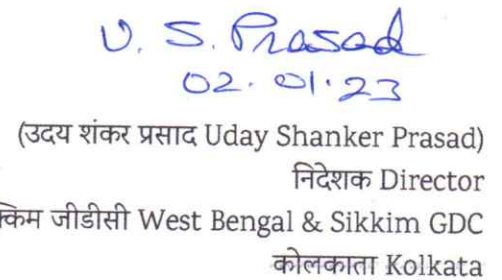 U. S. Prasad
02.01.23
(उदय शंकर प्रसाद Uday Shanker Prasad)
निदेशक Director
जीडीसी West Bengal & Sikkim GDC
कोलकाता Kolkata